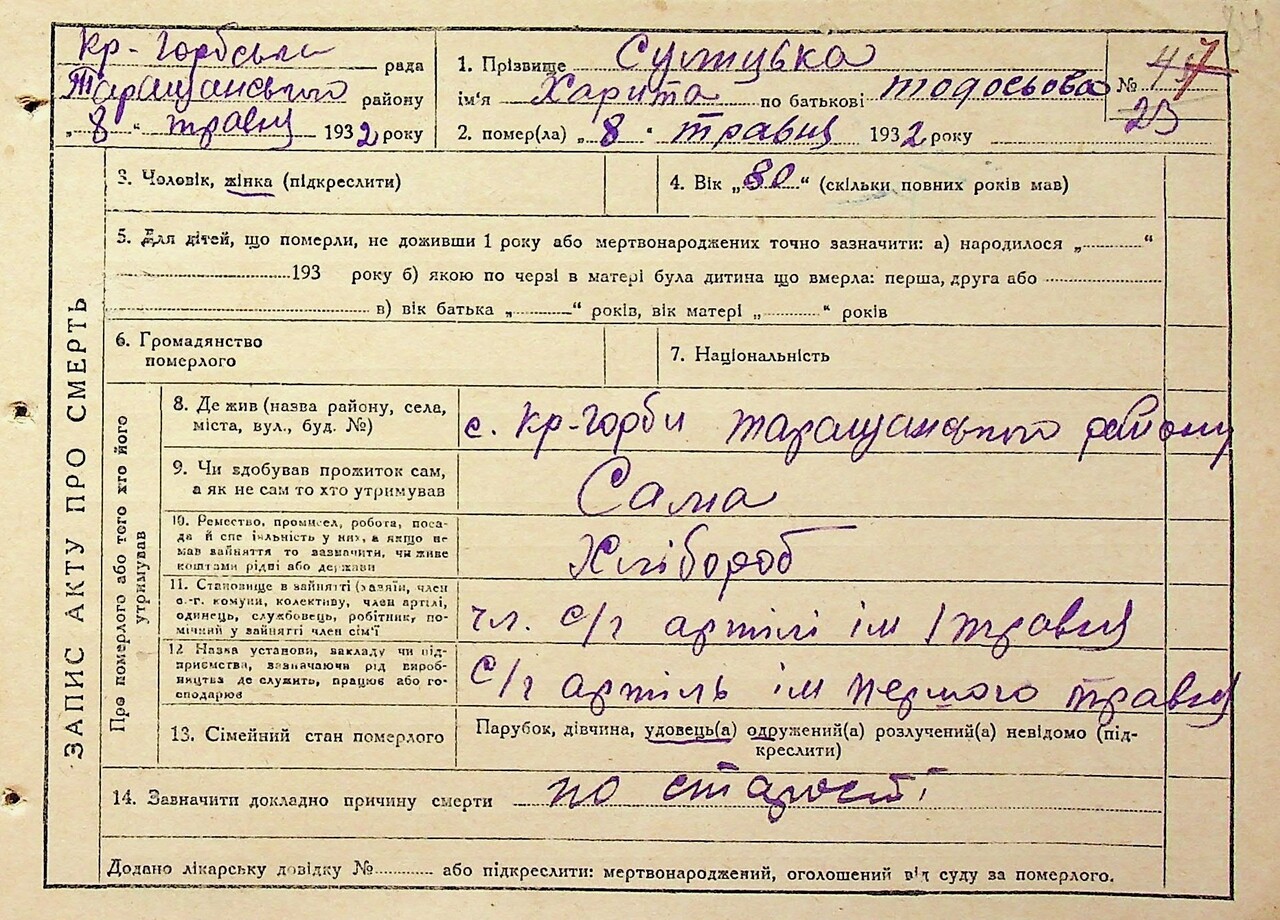 Кр-Горбська рада
Таращанського району
„8“ травня 1932 року
1. Прізвище Сулицька
ім'я Харита по батькові Тодосьова
2. помер(ла) „8“ травня 1932 року
№ 23
ЗАПИС АКТУ ПРО СМЕРТЬ
3. Чоловік, жінка (підкреслити)
4. Вік „80“ (скільки повних років мав)
5. Для дітей, що померли, не доживши 1 року або мертвонароджених точно зазначити: а) народилося „..........“
..........193 року б) якою по черзі в матері була дитина що вмерла: перша, друга або ..........
.......... в) вік батька „..........“ років, вік матері „..........“ років
6. Громадянство
померлого
7. Національність
Про померлого або того хто його
утримував
8. Де жив (назва району, села,
міста, вул., буд. №)
с. Кр-Горби Таращанського району
9. Чи здобував прожиток сам,
а як не сам то хто утримував
Сама
10. Ремество, промисел, робота, поса-
да й спе іяльність у них, а якщо не
мав зайняття то зазначити, чи живе
коштами рідні або держави
Хлібороб
11. Становище в зайнятті (хазяїн, член
с.-г. комуни, колективу, член артілі,
одинець, службовець, робітник, по-
мічний у зайнятті член сім'ї
чл. с/г артілі ім 1 травня
12 Назва установи, закладу чи під-
приємства, зазначаючи рід вироб-
ництва де служить, працює або го-
сподарює
С/г артіль ім першого травня
13. Сімейний стан померлого
Парубок, дівчина, удовець(а) одружений(а) розлучений(а) невідомо (під-
креслити)
14. Зазначити докладно причину смерти по старості
Додано лікарську довідку №.......... або підкреслити: мертвонароджений, оголошений від суду за померлого.